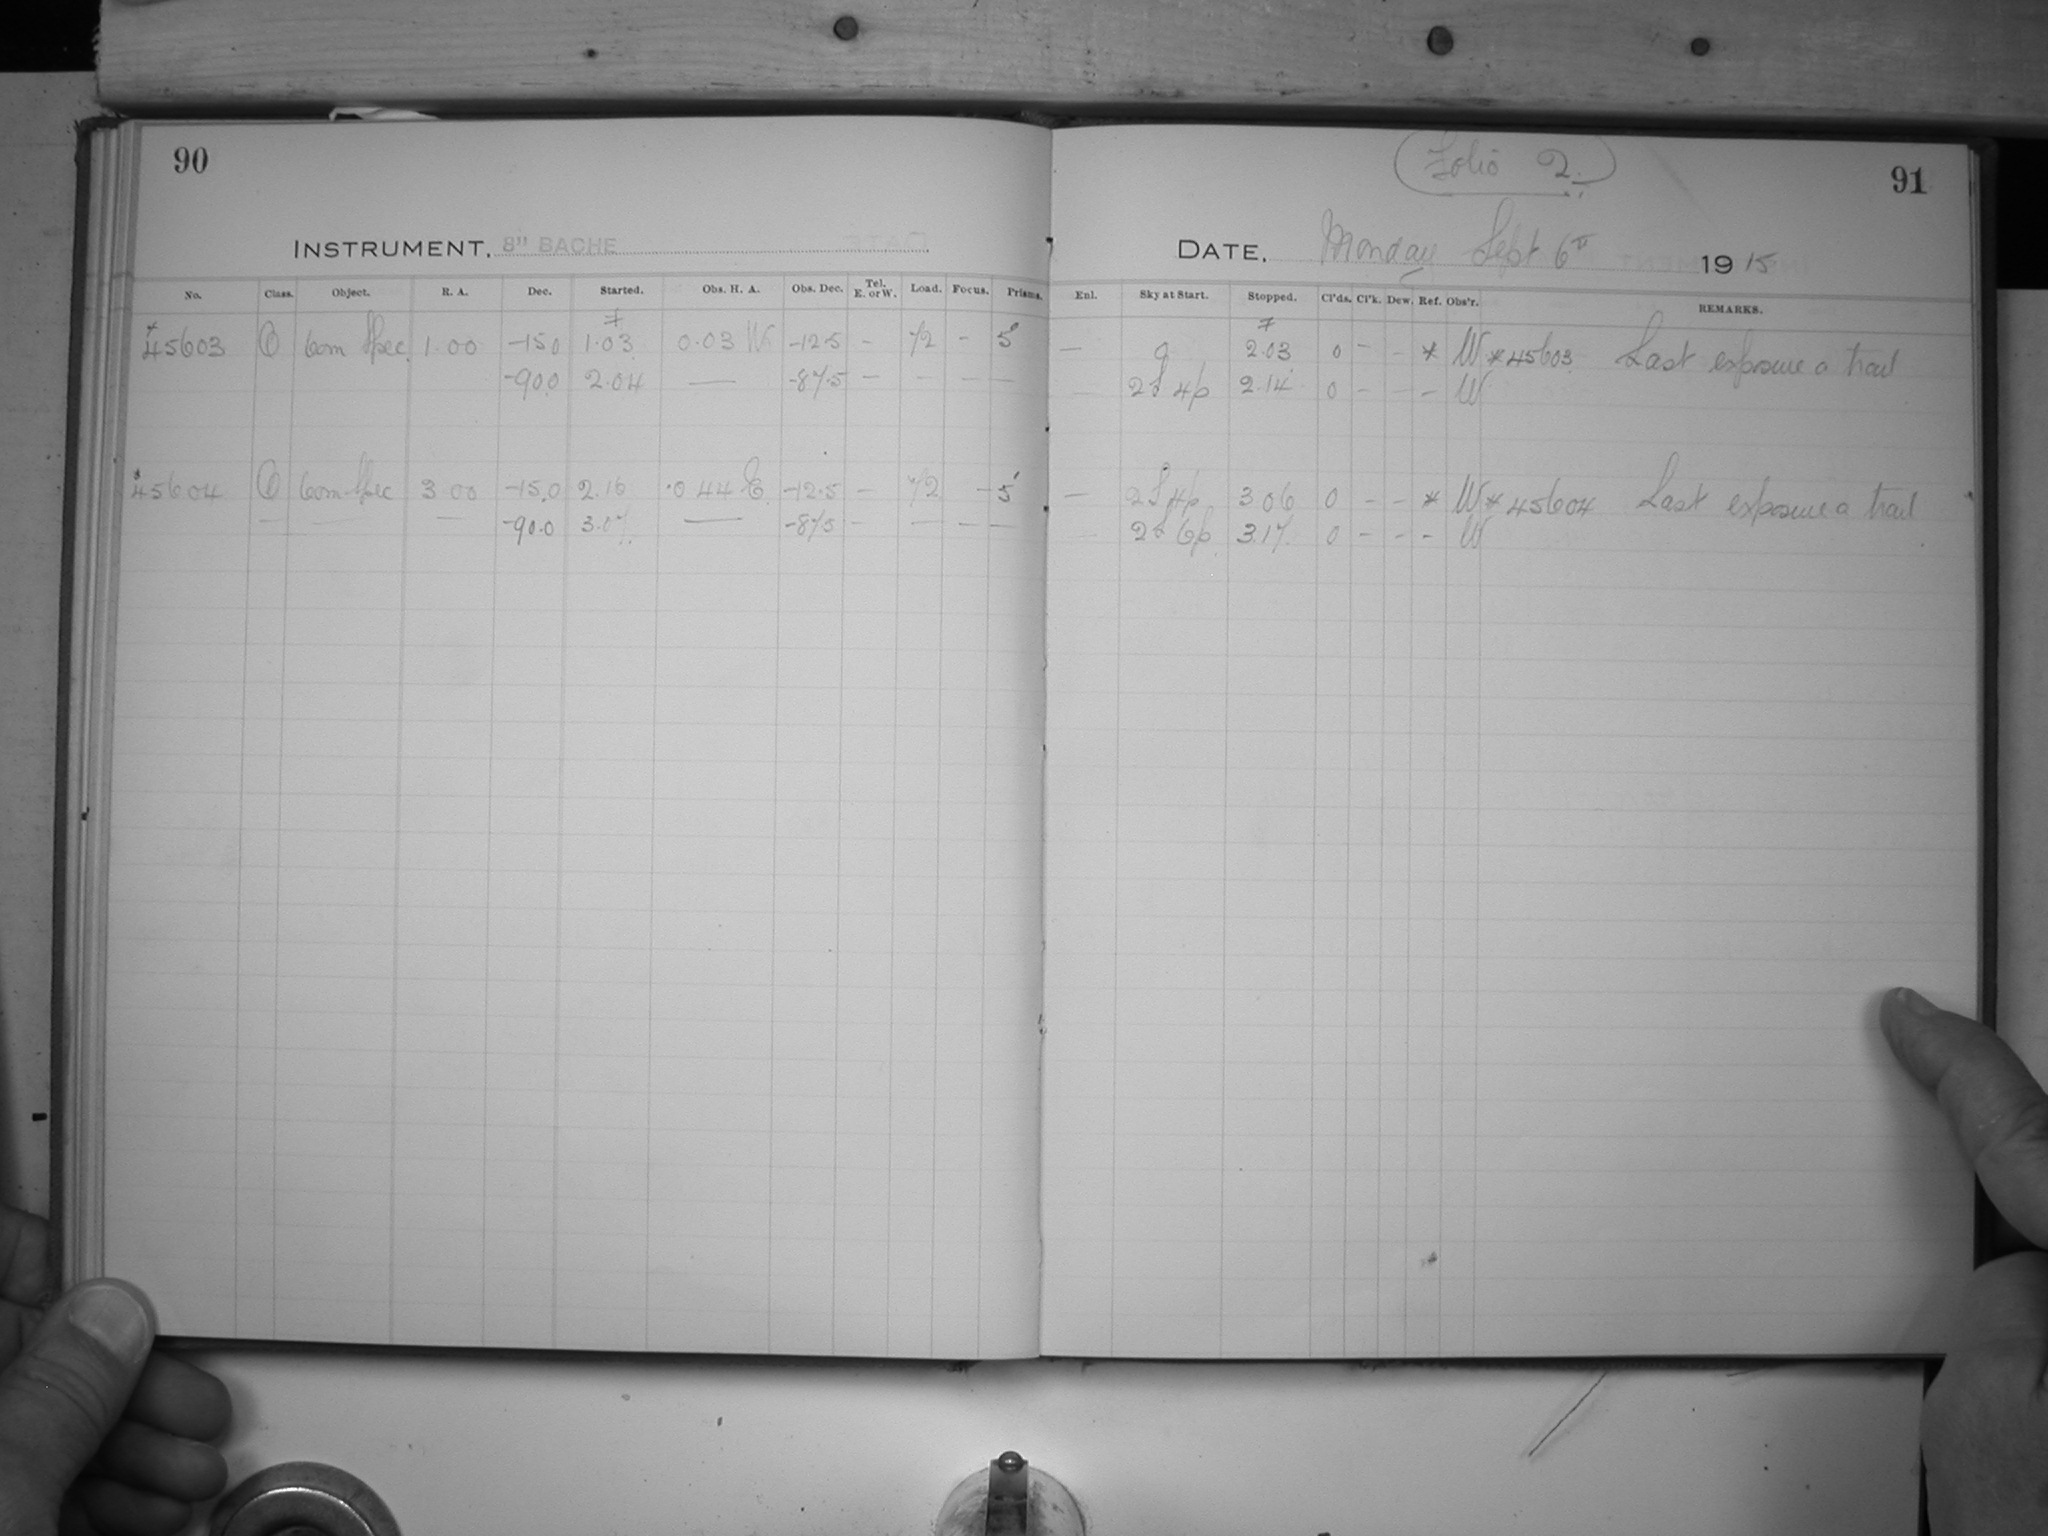 90
INSTRUMENT. 8" BACHE
No. Class. Object. R. A. Dec. Started. Obs. H. A. Obs. Dec. Tel. E. or W. Load. Focus. Prisms.
45603 C Com Spec 1.00 -15.0 1.03 0.03 W -12.5 - 1/2 - 5
-90.0 2.04 — -87.5 - — - —
45604 C Com Spec 3 00 -15.0 2.16 0 44 E -12.5 - 1/2 - 5
— — — -90.0 3.07 — -87.5 - — - —
Folio 2.
91
DATE. Monday Sept 6th 1915
Enl. Sky at Start. Stopped. Cl'ds. Cl'k. Dew. Ref. Obs'r. REMARKS.
— g 2.03 0 - - * W *45603 Last exposure a trail
2f 4p 2.14 0 - - - W
— 2f 4p 3 06 0 - - * W *45604 Last exposure a trail
2f 6p 3.17 0 - - - W